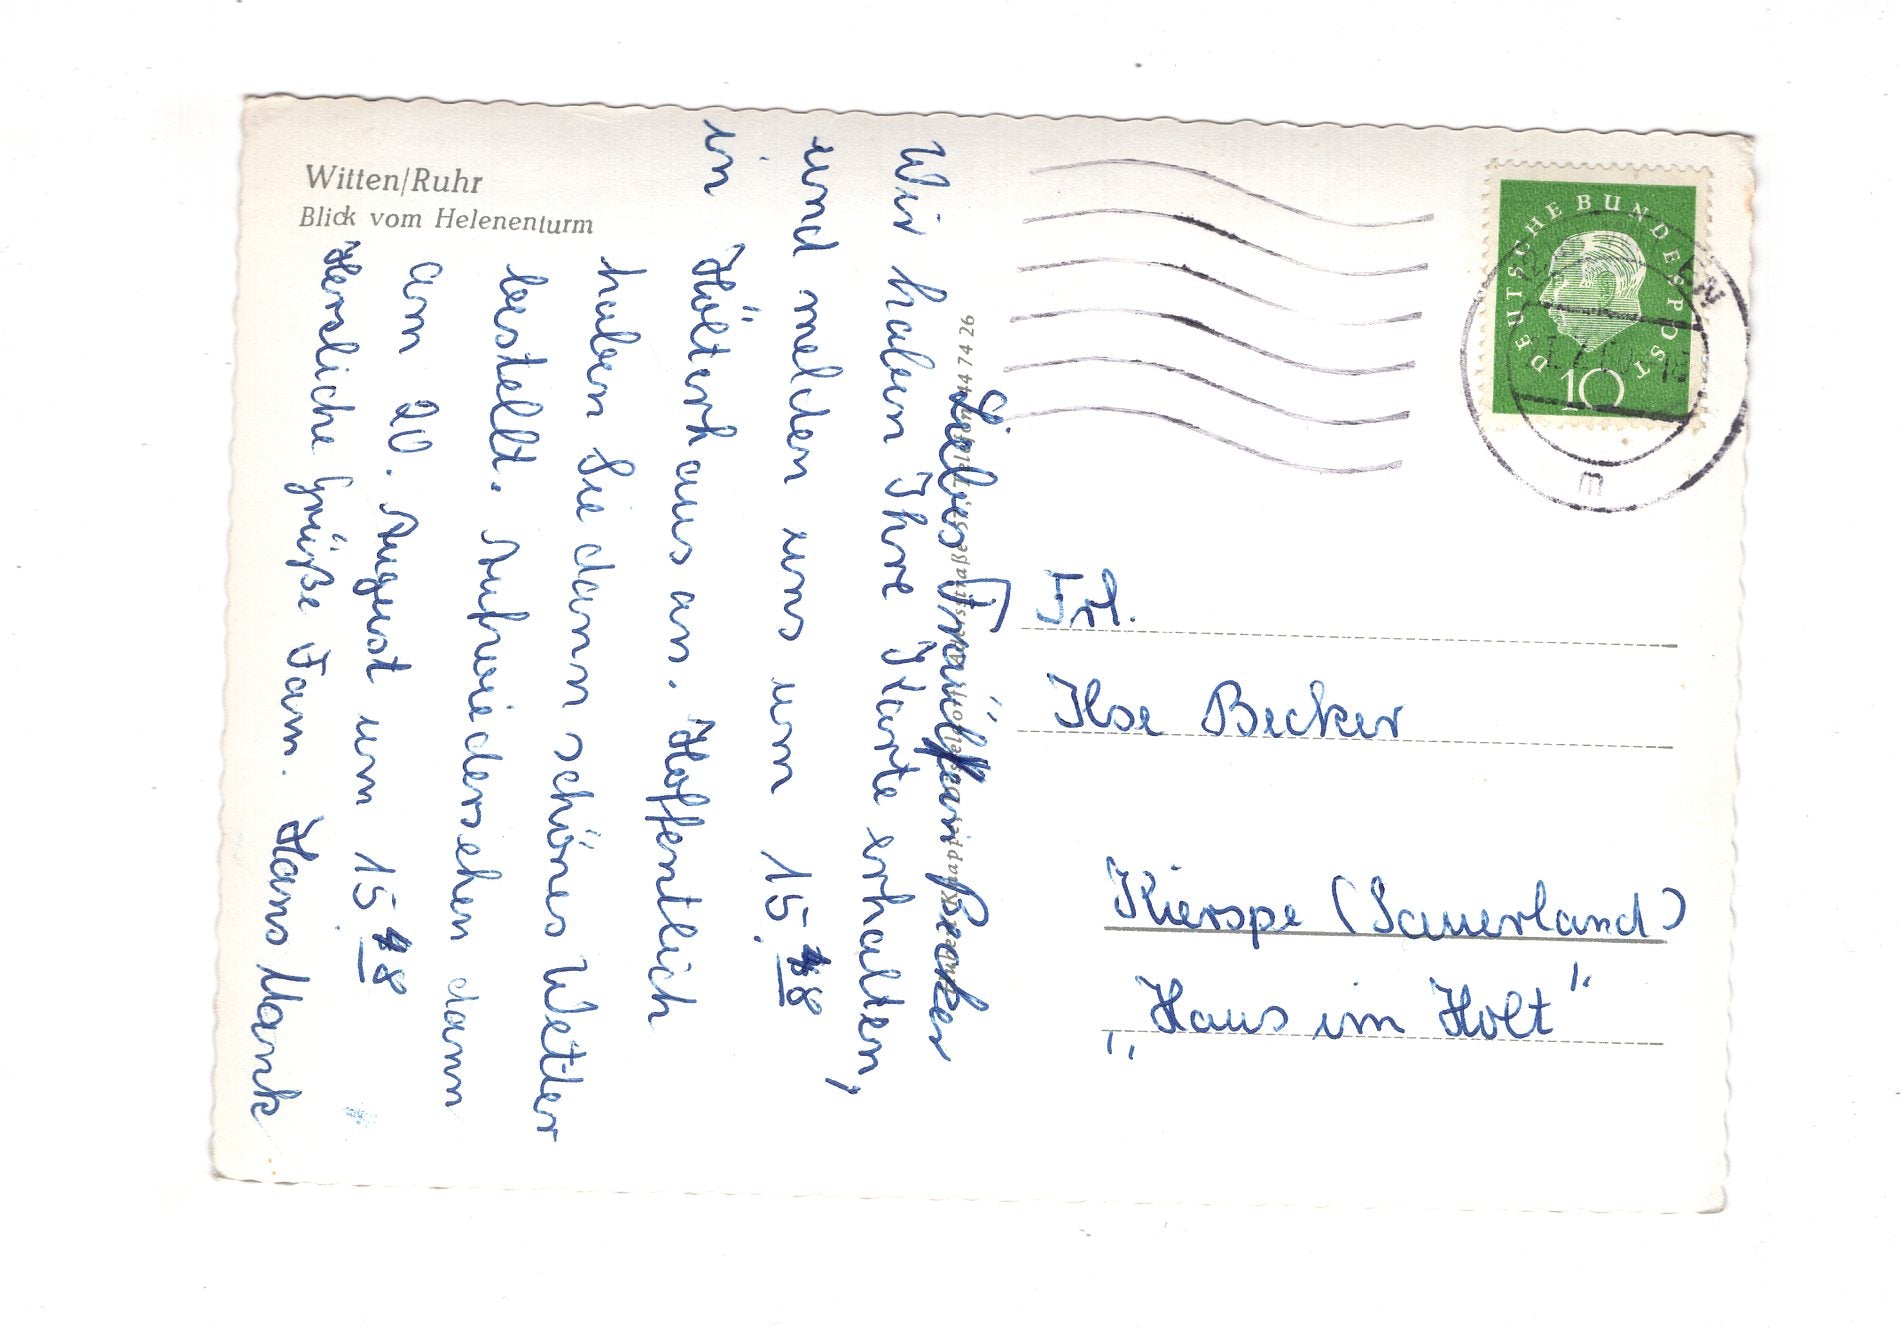 Witten/Ruhr
Blick vom Helenenturm
Liebes Fräulein Becker
Wir haben Ihre Karte erhalten,
und melden uns um 15.48
in Hölterhaus an. Hoffentlich
haben Sie dann schönes Wetter
bestellt. Aufwiedersehen dann
am 20. August um 15.48
Herzliche Grüße Fam. Hans Mank
44 74 26
DEUTSCHE BUNDESPOST
10
m
Frl.
Ilse Becker
Kierspe (Sauerland)
„Haus im Holt"